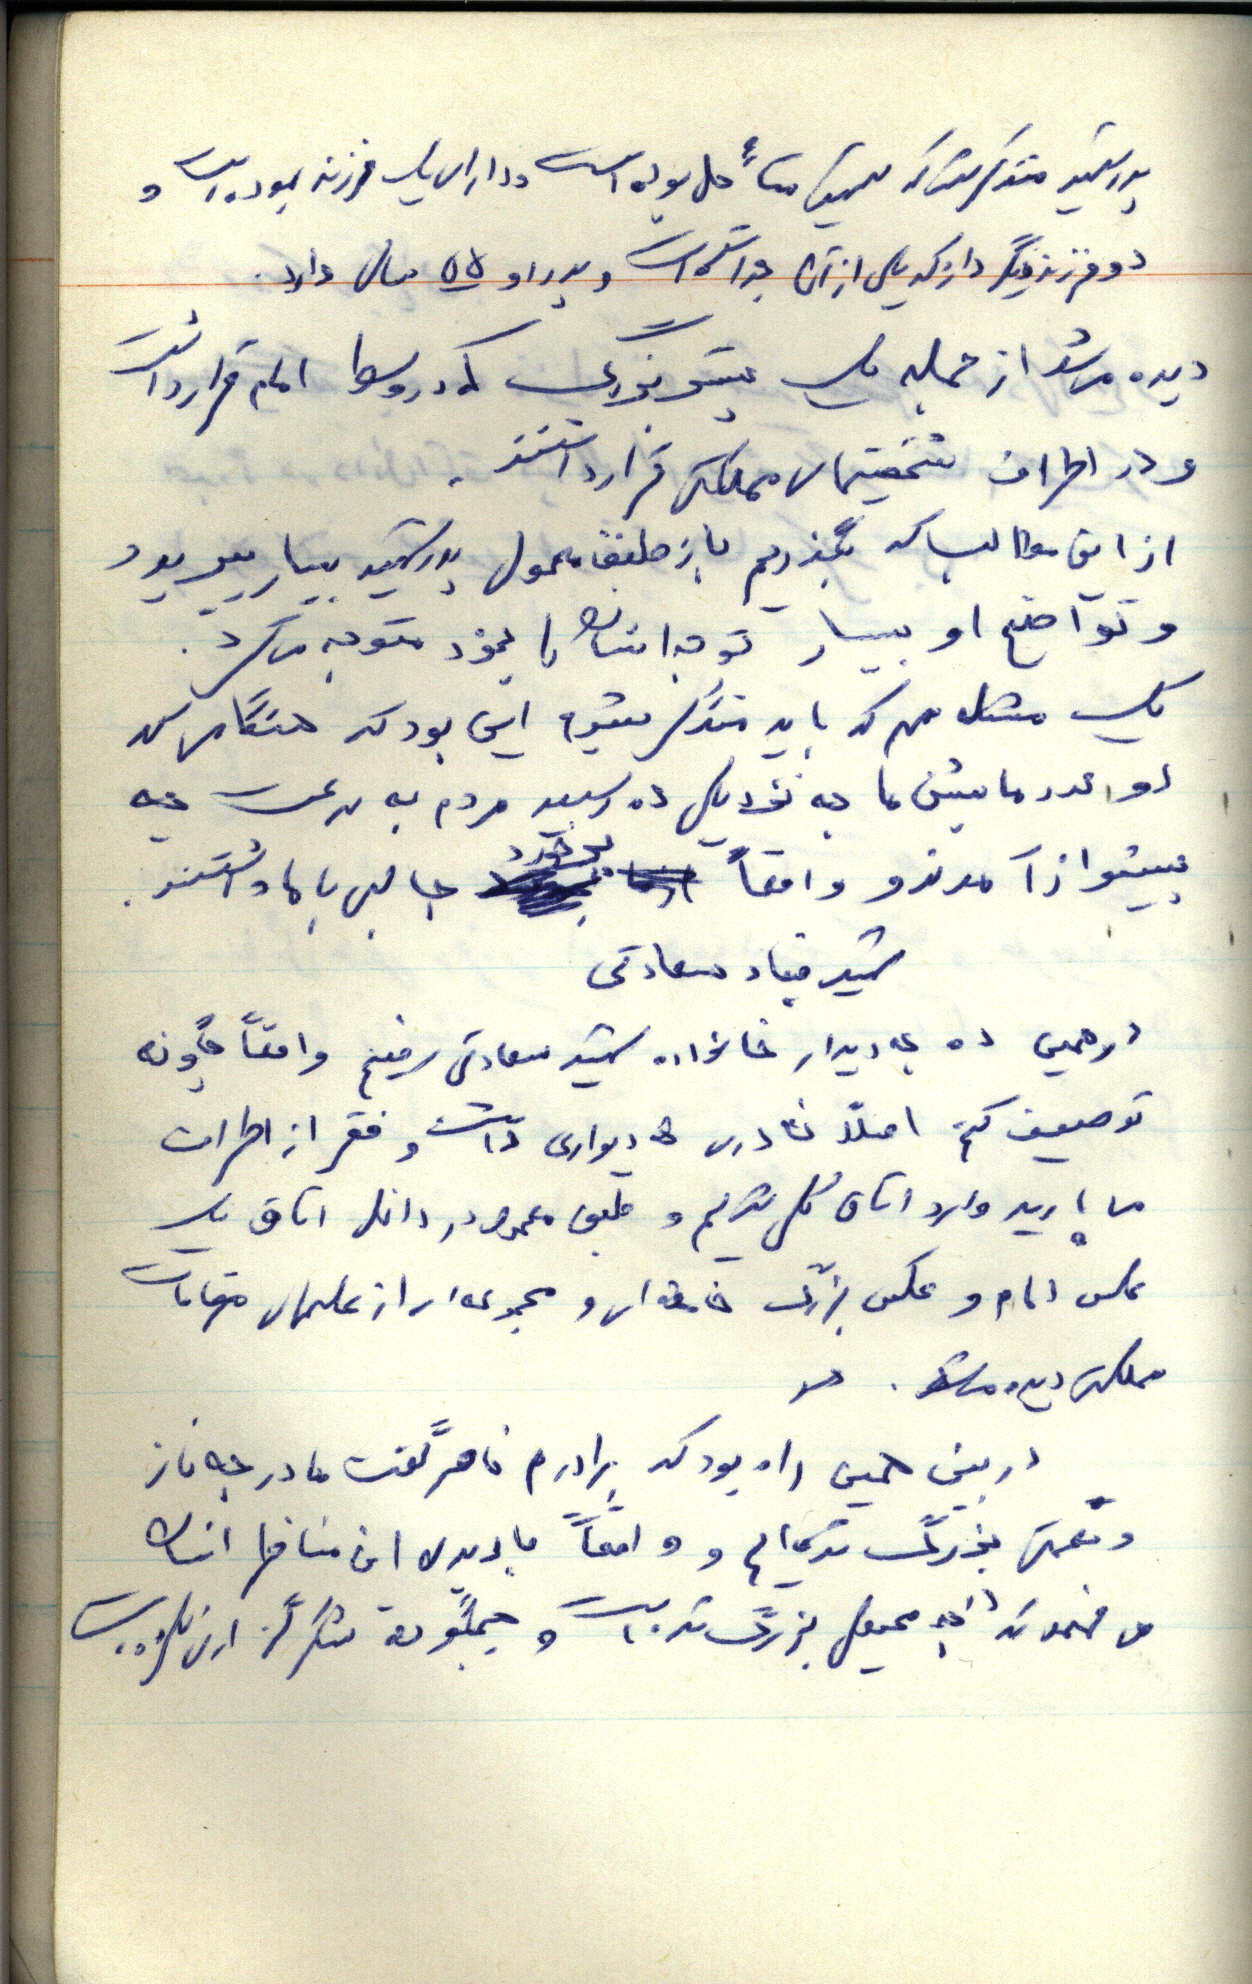 پدر شهید متذکر شد که شهید متأهل بوده است و دارای یک فرزند بوده است و
دو فرزند دیگر دارد که یکی از آنها است و پدر او ۵۵ سال دارد.
دیده می‌شد از جمله یک پوستر بزرگ که در وسط امام قرار داشت
و در اطراف شخصیتهای مملکتی قرار داشتند.
از این مطالب که بگذریم باز طبق معمول پدر شهید بسیار پیر بود
و تواضع او بسیار توجه انسان را بخود متوجه می‌کرد.
یک مشکل هم که باید متذکر بشوم این بود که هنگامی که
ما به نزدیکی ده رسید مردم به سرعت به
پیشواز آمدند و واقعاً برخورد جالبی با ما داشتند.
شهید سعادتی
در همین ده به دیدار خانواده شهید سعادتی رفتیم واقعاً چگونه
توصیف کنم اصلاً نه دری نه دیواری داشت و فقر از اطراف
می‌بارید وارد اتاق گلی شدیم و طبق معمول در داخل اتاق یک
عکس امام و عکس بزرگ خامنه‌ای و مجموعه‌ای از عکسهای مقامات
مملکتی دیده می‌شد.
در بین همین راه بود که برادرم گفت ما در چه ناز
و نعمتی بزرگ شده‌ایم و واقعاً با دیدن این انسان
می‌فهمد که در چه محیطی بزرگ شده است و چگونه شکرگزار